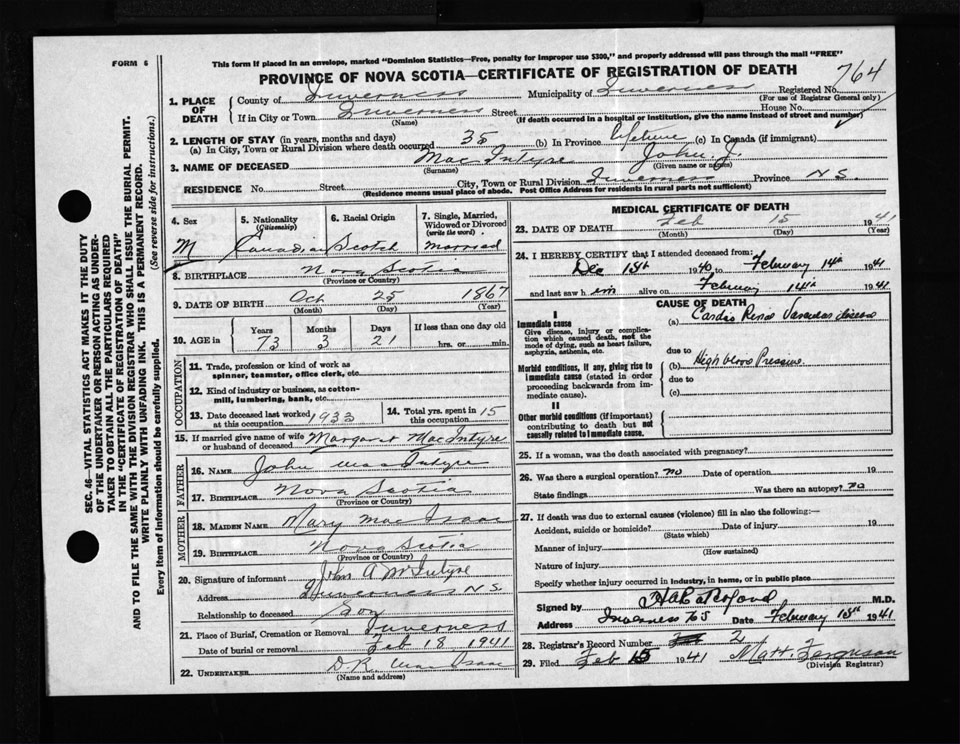 FORM 6
This form if placed in an envelope, marked "Dominion Statistics—Free, penalty for improper use $300," and properly addressed will pass through the mail "FREE"
PROVINCE OF NOVA SCOTIA—CERTIFICATE OF REGISTRATION OF DEATH
764
1. PLACE OF DEATH
County of Inverness Municipality of Inverness Registered No.
(For use of Registrar General only)
If in City or Town Inverness Street House No.
(Name) (If death occurred in a hospital or institution, give the name instead of street and number)
2. LENGTH OF STAY (in years, months and days)
(a) In City, Town or Rural Division where death occurred 35 (b) In Province Lifetime (c) In Canada (if immigrant)
3. NAME OF DECEASED Mac Intyre John J.
(Surname) (Given name or names)
RESIDENCE No. Street City, Town or Rural Division Inverness Province N S.
(Residence means usual place of abode. Post Office Address for residents in rural parts not sufficient)
4. Sex M
5. Nationality (Citizenship) Canadian
6. Racial Origin Scotch
7. Single, Married, Widowed or Divorced (write the word) married
8. BIRTHPLACE Nova Scotia
(Province or Country)
9. DATE OF BIRTH Oct 25 1867
(Month) (Day) (Year)
10. AGE in Years 73 Months 3 Days 21 If less than one day old hrs. or min.
OCCUPATION
11. Trade, profession or kind of work as spinner, teamster, office clerk, etc.
12. Kind of industry or business, as cotton-mill, lumbering, bank, etc.
13. Date deceased last worked at this occupation 1933
14. Total yrs. spent in this occupation 15
15. If married give name of wife or husband of deceased Margaret MacIntyre
FATHER
16. NAME John Mac Intyre
17. BIRTHPLACE Nova Scotia
(Province or Country)
MOTHER
18. MAIDEN NAME Mary Mac Isaac
19. BIRTHPLACE Nova Scotia
(Province or Country)
20. Signature of informant John A McIntyre
Address Inverness N S.
Relationship to deceased Son
21. Place of Burial, Cremation or Removal Inverness
Date of burial or removal Feb 18 1941
22. UNDERTAKER D R. Mac Isaac
(Name and address)
MEDICAL CERTIFICATE OF DEATH
23. DATE OF DEATH Feb 15 1941
(Month) (Day) (Year)
24. I HEREBY CERTIFY that I attended deceased from:
Dec 18th 1940 to February 14th 1941
and last saw him alive on February 14th 1941
CAUSE OF DEATH
I
Immediate cause
Give disease, injury or complication which caused death, not the mode of dying, such as heart failure, asphyxia, asthenia, etc.
(a) Cardio Renal Vascular disease
due to
Morbid conditions, if any, giving rise to immediate cause (stated in order proceeding backwards from immediate cause).
(b) High blood Pressure
due to
(c)
II
Other morbid conditions (if important) contributing to death but not causally related to immediate cause.
25. If a woman, was the death associated with pregnancy?
26. Was there a surgical operation? no Date of operation 19
State findings Was there an autopsy? no
27. If death was due to external causes (violence) fill in also the following:—
Accident, suicide or homicide? Date of injury 19
(State which)
Manner of injury
(How sustained)
Nature of injury
Specify whether injury occurred in industry, in home, or in public place
Signed by M.D.
Address Inverness Date February 18th 1941
28. Registrar's Record Number 2
29. Filed Feb 15 1941 Matt. Ferguson
(Division Registrar)
SEC. 46—VITAL STATISTICS ACT MAKES IT THE DUTY
OF THE UNDERTAKER OR PERSON ACTING AS UNDER-
TAKER TO OBTAIN ALL THE PARTICULARS REQUIRED
IN THE "CERTIFICATE OF REGISTRATION OF DEATH"
AND TO FILE THE SAME WITH THE DIVISION REGISTRAR WHO SHALL ISSUE THE BURIAL PERMIT.
WRITE PLAINLY WITH UNFADING INK. THIS IS A PERMANENT RECORD.
Every item of information should be carefully supplied. (See reverse side for instructions.)